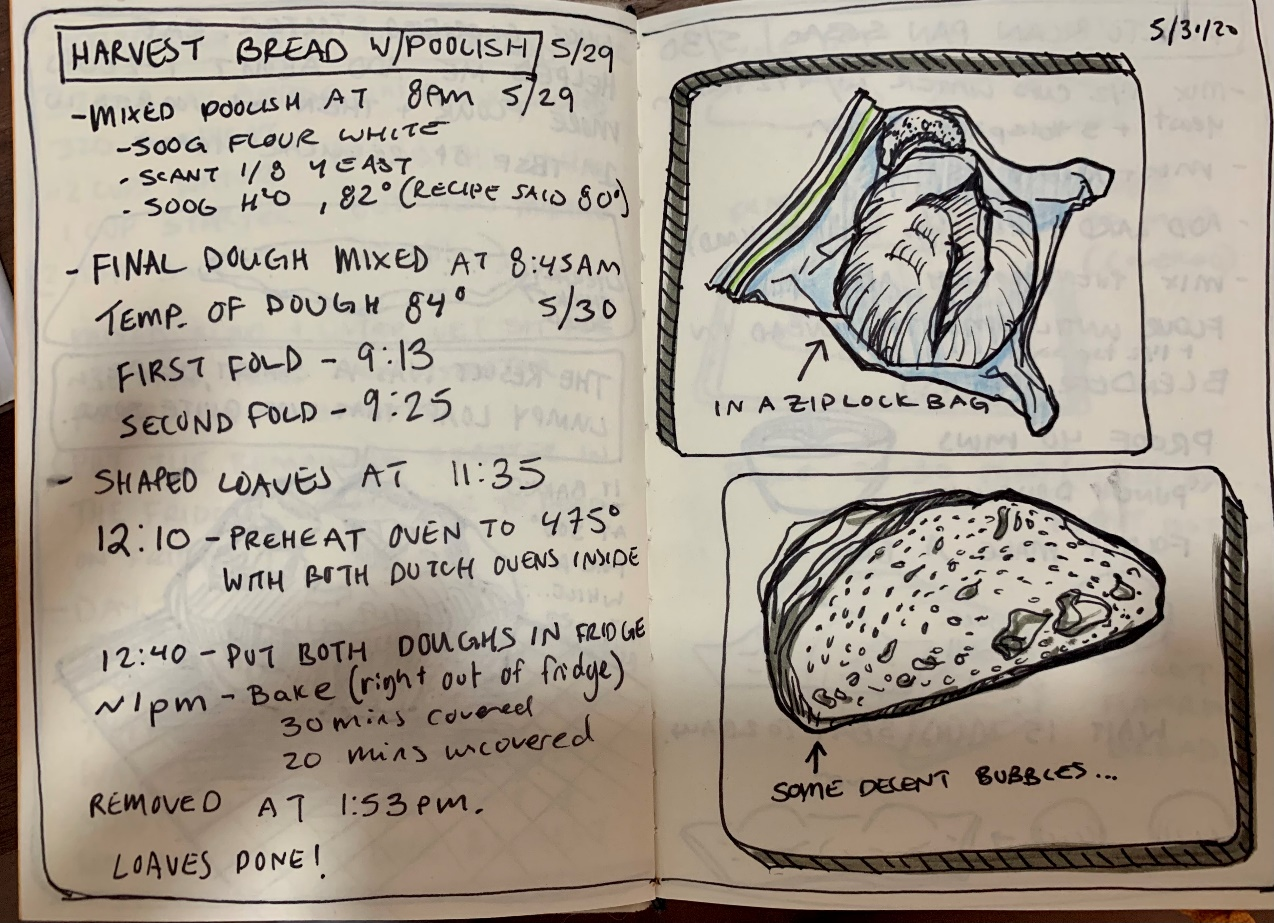 HARVEST BREAD W/POOLISH 5/29
- MIXED POOLISH AT 8PM 5/29
- 500G FLOUR WHITE
- SCANT 1/8 YEAST
- 500G H2O, 82° (RECIPE SAID 80°)
- FINAL DOUGH MIXED AT 8:45AM
TEMP. OF DOUGH 84° 5/30
FIRST FOLD - 9:13
SECOND FOLD - 9:25
- SHAPED LOAVES AT 11:35
12:10 - PREHEAT OVEN TO 475°
WITH BOTH DUTCH OVENS INSIDE
12:40 - PUT BOTH DOUGHS IN FRIDGE
~1pm - Bake (right out of fridge)
30 mins covered
20 mins uncovered
REMOVED AT 1:53 PM.
LOAVES DONE!
5/31/20
IN A ZIPLOCK BAG
SOME DECENT BUBBLES...